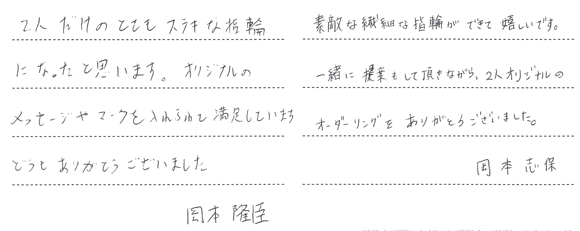 2人だけのとても ステキな指輪
になったと思います。オリジナルの
メッセージや マークを入れられて満足しています
どうも ありがとうございました
岡本 隆臣
素敵な繊細な指輪ができて嬉しいです。
一緒に提案もして頂きながら、2人オリジナルの
オーダーリングを ありがとうございました。
岡本 志保